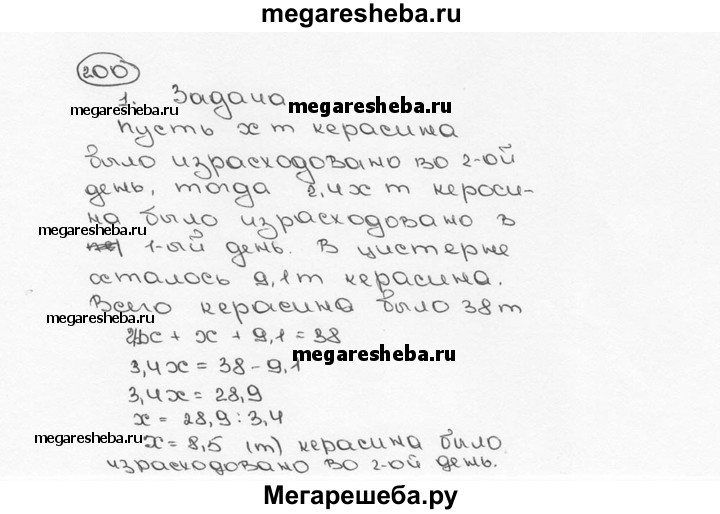 megaresheba.ru
200
1. Задача
megaresheba.ru
megaresheba.ru
Пусть x т керасина
было израсходовано во 2-ой
день, тогда 2,4x т кероси-
megaresheba.ru
на было израсходовано в
1-ый день. В цистерне
осталось 9,1т керасина.
Всего керасина было 38т
megaresheba.ru
2,4x + x + 9,1 = 38
megaresheba.ru
3,4x = 38 - 9,1
3,4x = 28,9
x = 28,9 : 3,4
megaresheba.ru
x = 8,5 (т) керасина было
израсходовано во 2-ой день.
Мегарешеба.ру